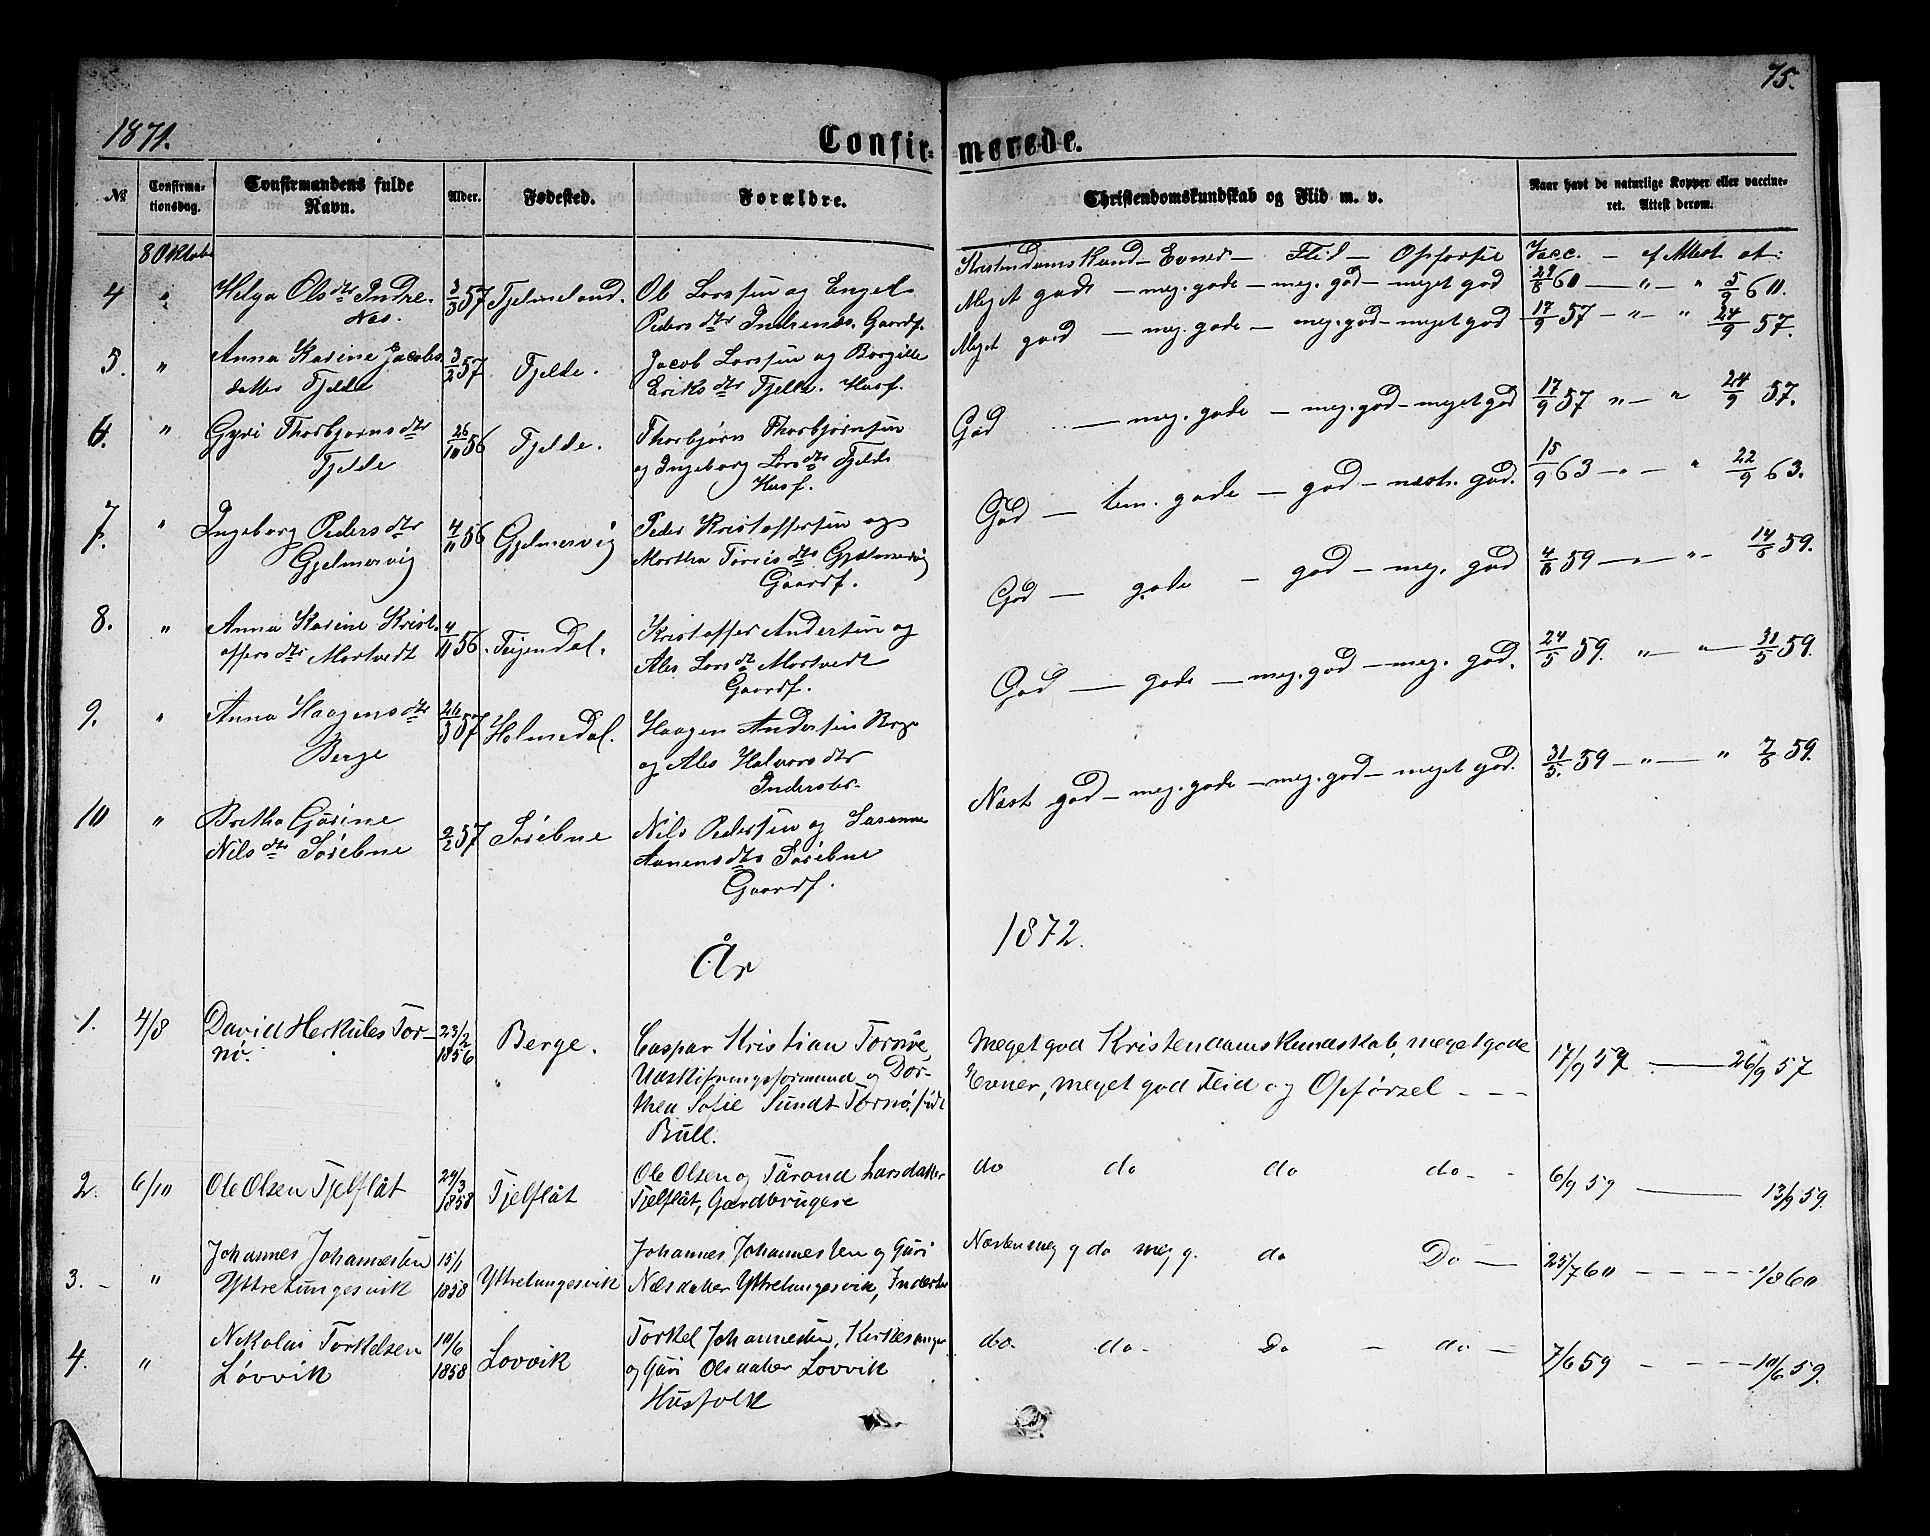 75.
1871.
Confirmerede.
№
Confirmationsdag.
Confirmandens fulde Navn.
Alder.
Fødested.
Forældre.
Christendomskundskab og Flid m. v.
Naar havt de naturlige Kopper eller vaccineret. Attest derom.
8 Oktober
Kristendoms Kund - Evner - Flid - Opførsel
Vacc. - af Attest at:
4 " Helga Olsdtr Indre-
Næs.
3/3 57 Fjelmeland.
Ole Larssen og Engel
Pedersdtr Indrenæs. Gaardf.
Meget god - meg. gode - meg. god - meget god
29/8 60 - " - " 5/9 60.
5. " Anna Karine Jacobs
datter Fjelde
3/2 57 Fjelde.
Jacob Larssen og Borgille
Eriksdtr Fjelde. Husf.
Meget god - meg. gode - meg. god - meget god
17/9 57 - " - " 24/9 57.
6. " Gyri Thorbjørnsdtr
Fjelde
26/10 56 Fjelde.
Thorbjørn Thorbjørnsen
og Ingeborg Larsdtr Fjelde
Husf.
God - meg. gode - meg. god - meget god
17/9 57 " - " 24/9 57.
7. " Ingeborg Pedersdtr
Gjelmervig
4/11 56 Gjelmervig
Peder Kristoffersen og
Martha Torrisdtr Gjelmervig
Gaardf.
God - tem. gode - god - næst. god.
15/9 63 - " - " 22/9 63.
8. " Anna Karine Krist-
offersdtr Mortvedt
4/11 56 Teigendal.
Kristoffer Andersen og
Ales Larsdt Mortvedt
Gaardf.
God - gode - god - meg. god
4/8 59 - " - " - 14/8 59.
9. " Anna Haagensdtr
Berge
26/3 57 Holmedal.
Haagen Andersen Berge
og Ales Halvorsdtr
Inderster.
God - gode - meg. god - meg. god.
24/5 59. " - " - 31/5 59.
10 " Bertha Gurine
Nilsdtr Sørebne
2/2 57 Sørebne
Nils Pedersen og Susanne
Aanensdtr Sørebne
Gaardf.
Næst god - meg. gode - meg. god - meget god.
31/5. 59 - " - " 7/6 59.
År
1872.
1. 4/8 David Herkules Tor-
nø.
23/2
1856
Berge.
Caspar Kristian Tornøe,
Udskiftningsformand og Dor-
thea Sofie Sundt Tornø, født
Bull.
Meget god Kristendomskundskab, meget gode
Evner, meget god Flid og Opførzel - - -
17/9 57 - 26/9 57
2. 6/10 Ole Olsen Fjelflåt
29/3
1858
Fjelflåt
Ole Olsen og Tårand Larsdatter
Fjelflåt, Gardbrugere
do do do do - -
6/9 59 - 13/9 59.
3. - " Johannes Johannesen
Yttretungesvik
15/1
1858
Yttretungesvik
Johannes Johannesen og Guri
Nælsdatter Yttretungesvik, Inderster
Næsten meg g do meg g. do Do -
25/7 60 - - - - - 1/8 60
4. " Nikolai Torkelsen
Løvvik
10/6
1858
Lovvik
Torkel Johannesen, Kirkesanger
og Guri Olsdatter Lovvik
Husfolk
do. do - Do - do -
7/6 59 - - - - 10/6 59.